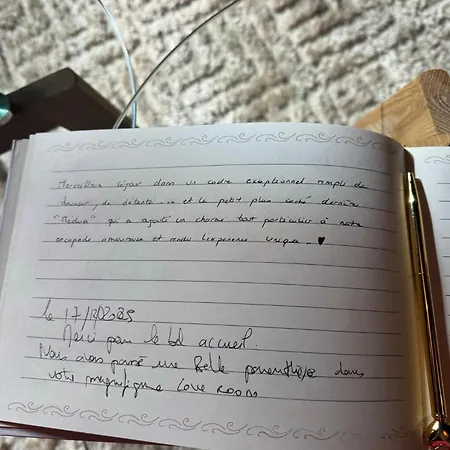 Merveilleux séjour dans un cadre exceptionnel rempli de
douceur, de détente... et le petit plus caché derrière
"Médusa" qui a ajouté un charme tout particulier à notre
escapade amoureuse et rendu l'expérience unique. ♥
Le 17/
Merci pour le bel accueil.
Nous avons passé une Belle parenthèse dans
votre magnifique Love Room